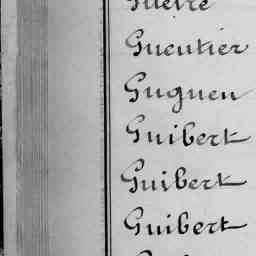 Gueutier
Guguen
Guibert
Guibert
Guibert